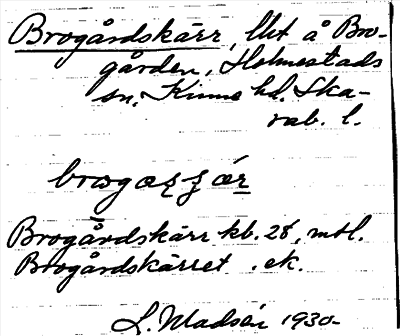 Brogårdskärr, lht å Bro-
gården, Holmestads
sn, Kinne hd. Ska-
rab. l.
Brogårdskärr kb. 28, mtl.
Brogårdskärret . ek.
L. Madsén 1930-